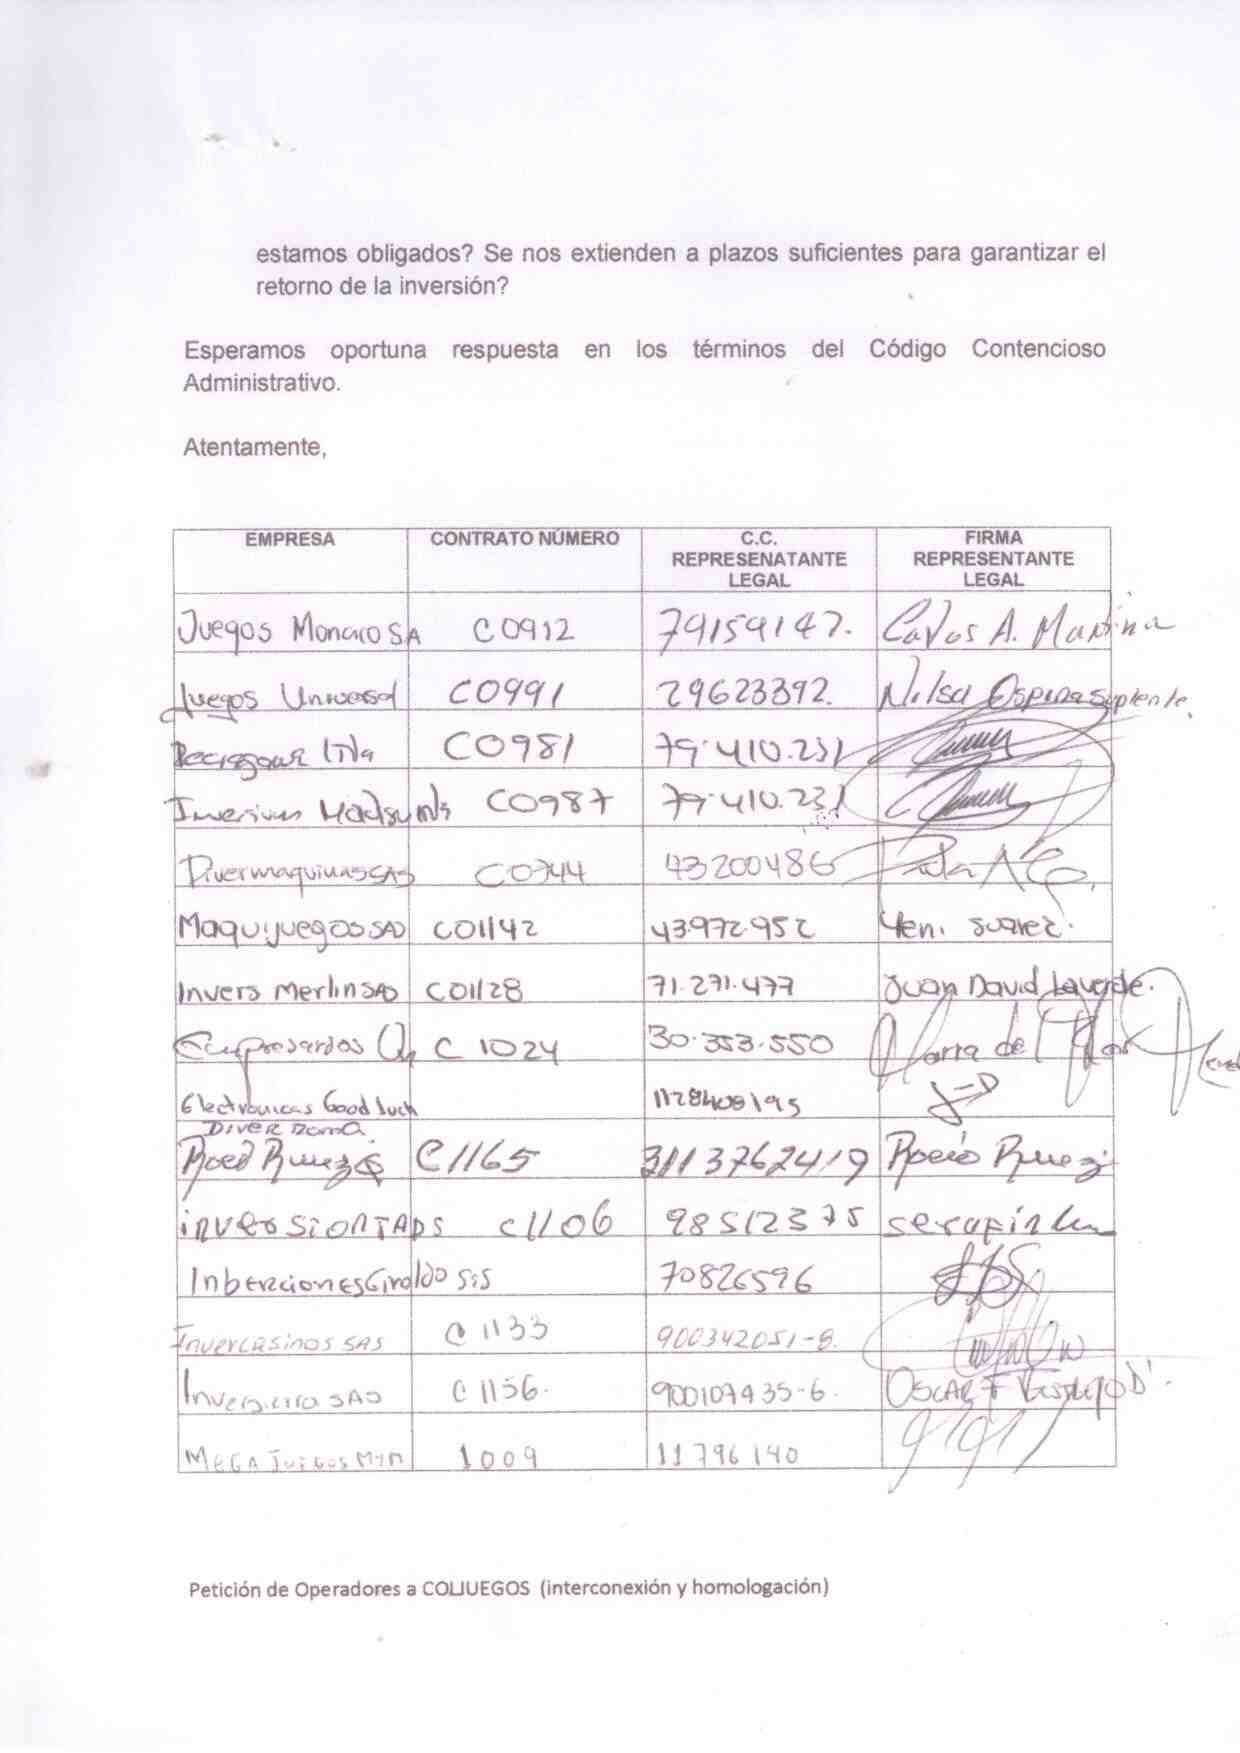 estamos obligados? Se nos extienden a plazos suficientes para garantizar el
retorno de la inversión?
Esperamos oportuna respuesta en los términos del Código Contencioso
Administrativo.
Atentamente,
EMPRESA CONTRATO NÚMERO C.C. REPRESENATANTE LEGAL FIRMA REPRESENTANTE LEGAL
Juegos Monaco SA C0912 79159147. Carlos A. Martina
Juegos Universal C0991 29623392. Nilsa Ospina Suplente.
Ltda C0981 79.410.231
C0987 79.410.231
Divermaquinas SAS C0744 43200486
Maquijuegos SAS C01142 43.972.952 Yeni Suarez.
Invers Merlin SAS C01128 71.271.477 Juan David Laverde.
C 1024 30.353.550 Maria del
Electronicas Good Luck 1128408195
DIVER ROMA
C1165 3113762419 Rocio
inversionTADS C1106 98512375 serafin
InbercionesGiraldo SiS 70826596
Invercasinos SAS C 1133 900342051-8.
SAS C 1156. 900107435-6. OSCAR F
MEGA JUEGOS MYM 1009 11796140
Petición de Operadores a COLJUEGOS (interconexión y homologación)